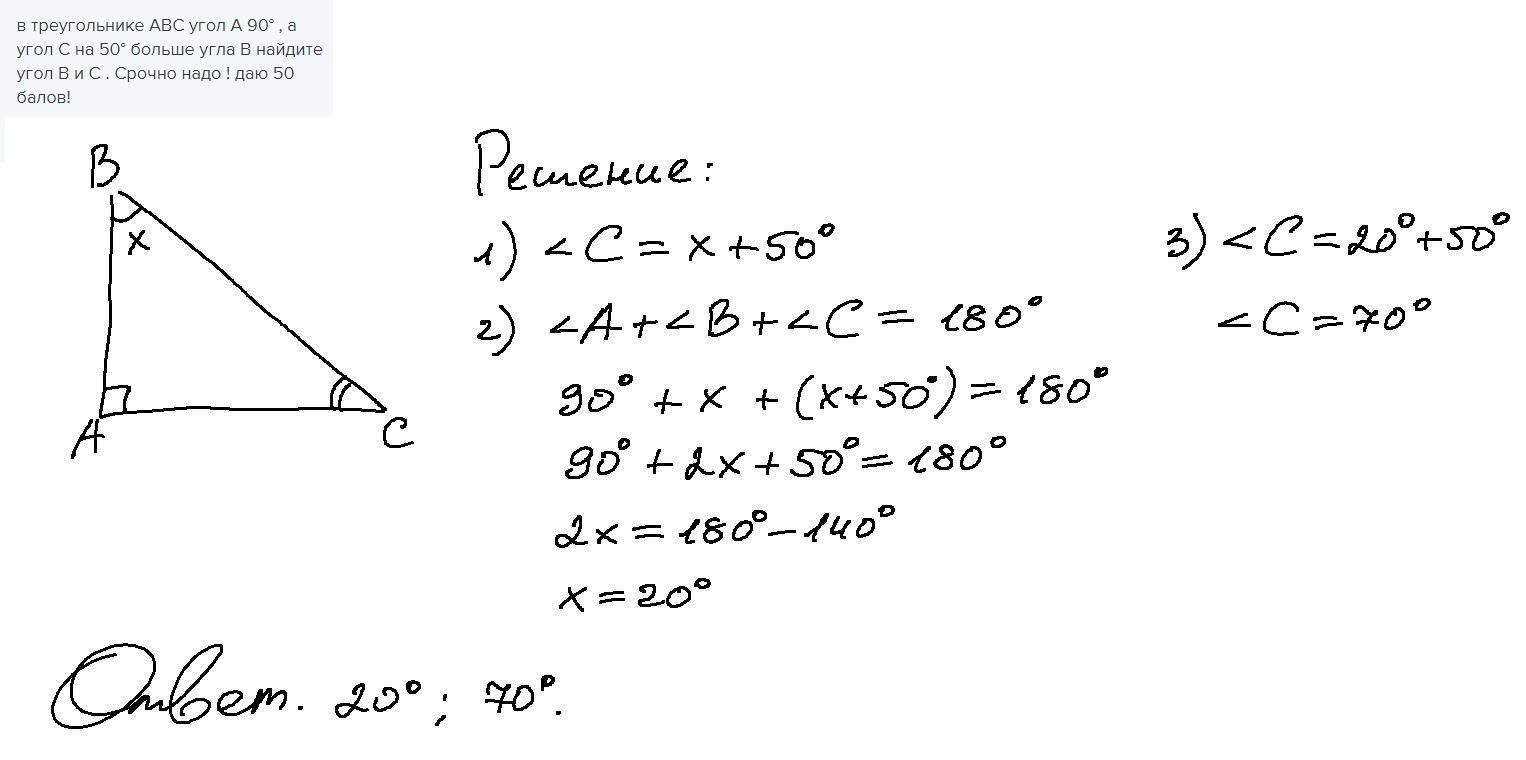 в треугольнике АВС угол А 90° , а
угол С на 50° больше угла В найдите
угол В и С . Срочно надо ! даю 50
балов!
B
x
A
C
Решение:
1) <C = x + 50°
2) <A + <B + <C = 180°
90° + x + (x+50°) = 180°
90° + 2x + 50° = 180°
2x = 180° - 140°
x = 20°
3) <C = 20° + 50°
<C = 70°
Ответ. 20° ; 70°.